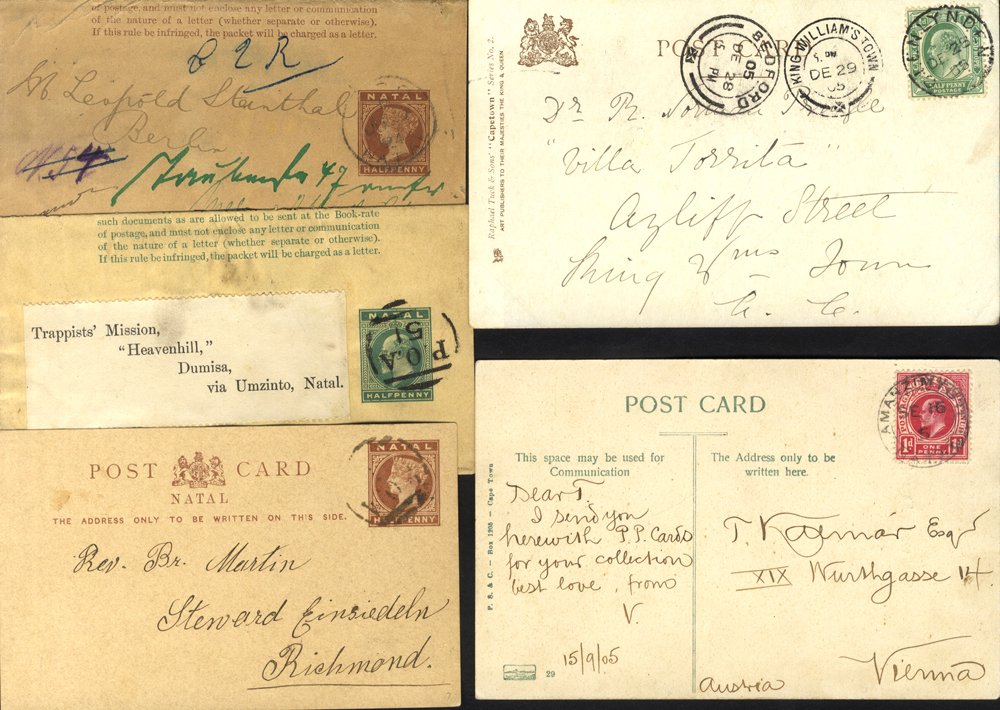 of postage, and must not enclose any letter or communication
of the nature of a letter (whether separate or otherwise).
If this rule be infringed, the packet will be charged as a letter.
Leopold
Berlin
NATAL
HALFPENNY
such documents as are allowed to be sent at the Book-rate
of postage, and must not enclose any letter or communication
of the nature of a letter (whether separate or otherwise).
If this rule be infringed, the packet will be charged as a letter.
Trappists' Mission,
"Heavenhill,"
Dumisa,
via Umzinto, Natal.
NATAL
HALFPENNY
P.O.A
51
POST CARD
NATAL
THE ADDRESS ONLY TO BE WRITTEN ON THIS SIDE.
NATAL
HALFPENNY
Rev. Br. Martin
Steward Einsiedeln
Richmond.
POST CARD
Raphael Tuck & Sons' "Capetown" Series No. 2.
ART PUBLISHERS TO THEIR MAJESTIES THE KING & QUEEN
BEDFORD
DE 28
05
KING WILLIAM'S TOWN
DE 29
05
HALF PENNY
POSTAGE
Dr R.
"Villa Torrita"
Ayliff Street
King Wms Town
C. C.
POST CARD
This space may be used for
Communication
The Address only to be
written here.
P. S. & C. – Box 1205 – Cape Town
Dear T.
I send you
herewith P.P. Cards
for your collection
best love, from
V.
15/9/05
29
1d ONE PENNY 1d
T. Esqr
XIX Wurthgasse 14.
Vienna
Austria